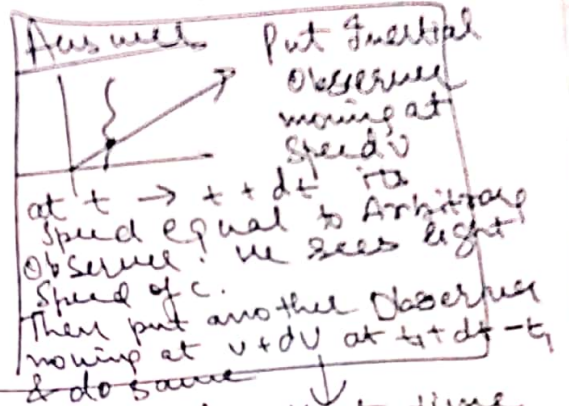 Answer Put Inertial
Observer
moving at
speed v
at t → t + dt its
speed equal to Arbitrary
Observer. He sees light
speed of c.
Then put another Observer
moving at v + dv at t₁ + dt - t₁
& do same
time